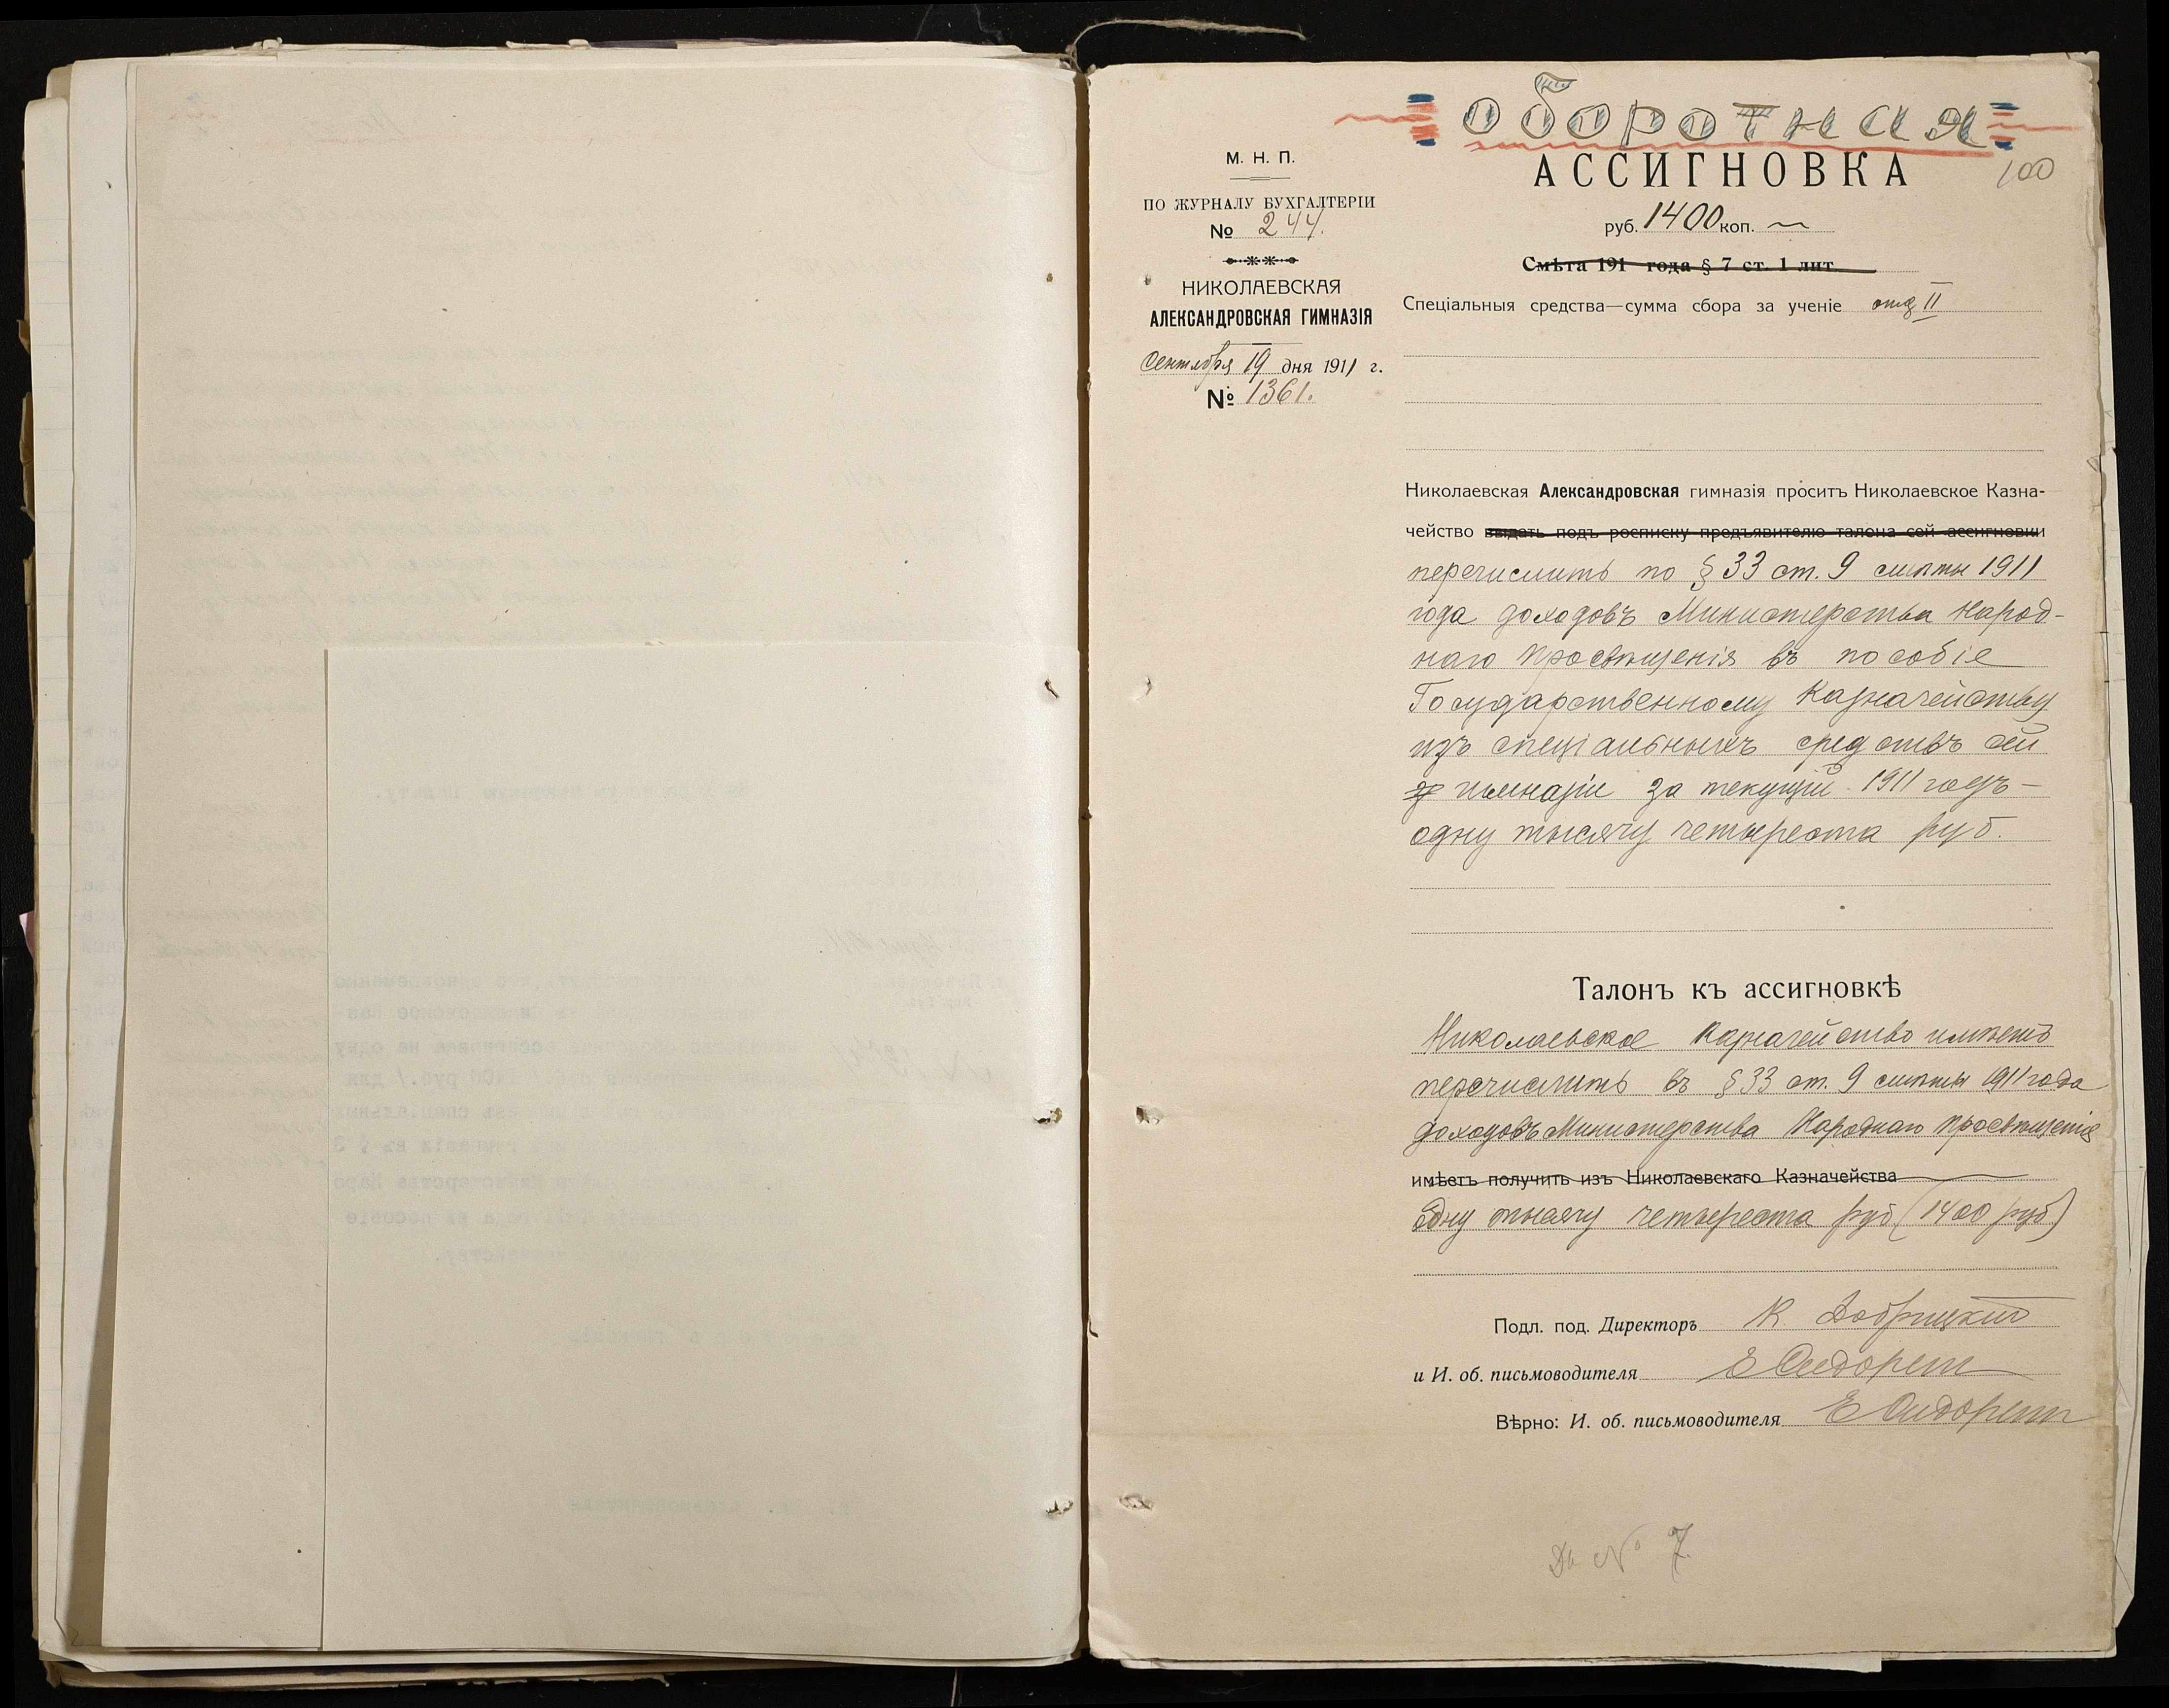 оборотная
АССИГНОВКА
100
руб. 1400 коп. —
Смѣта 191 года § 7 ст. 1 лит.
Спеціальныя средства—сумма сбора за ученіе отд II
М. Н. П.
ПО ЖУРНАЛУ БУХГАЛТЕРІИ
№ 244.
НИКОЛАЕВСКАЯ
АЛЕКСАНДРОВСКАЯ ГИМНАЗІЯ
Сентября 19 дня 1911 г.
№ 1361.
Николаевская Александровская гимназія проситъ Николаевское Казна-
чейство выдать подъ росписку предъявителю талона сей ассигновки
перечислить по § 33 ст. 9 смѣты 1911
года доходовъ Министерства Народ-
наго Просвѣщенія въ пособіе
Государственному Казначейству
изъ спеціальныхъ средствъ сей
гимназіи за текущій 1911 годъ —
одну тысячу четыреста руб.
Талонъ къ ассигновкѣ
Николаевское Казначейство имѣетъ
перечислить въ § 33 ст. 9 смѣты 1911 года
доходовъ Министерства Народнаго Просвѣщенія
имѣетъ получить изъ Николаевскаго Казначейства
Одну тысячу четыреста руб (1400 руб)
Подл. под. Директоръ К. Добрицкій
и И. об. письмоводителя Е
Вѣрно: И. об. письмоводителя Е
№ 7.